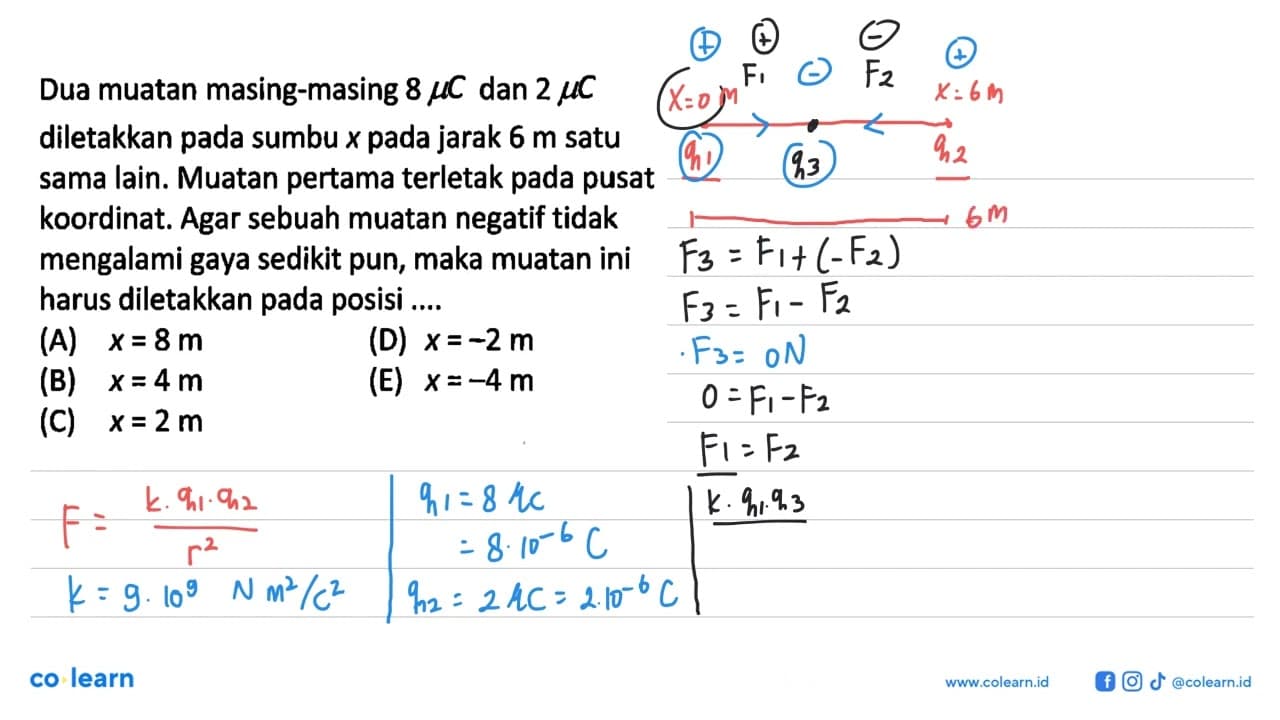 Dua muatan masing-masing 8 μC dan 2 μC
diletakkan pada sumbu x pada jarak 6 m satu
sama lain. Muatan pertama terletak pada pusat
koordinat. Agar sebuah muatan negatif tidak
mengalami gaya sedikit pun, maka muatan ini
harus diletakkan pada posisi ....
(A) x = 8 m (D) x = -2 m
(B) x = 4 m (E) x = -4 m
(C) x = 2 m
+ + - +
F1 - F2
x=0 m x=6m
q1 q3 q2
6m
F3 = F1+(-F2)
F3 = F1 - F2
F3 = 0N
0 = F1 - F2
F1 = F2
k. q1. q3
F = k. q1. q2 / r²
k = 9. 10⁹ N m²/c²
q1 = 8 μc
= 8. 10⁻⁶ C
q2 = 2 μC = 2.10⁻⁶ C
co learn
www.colearn.id
@colearn.id